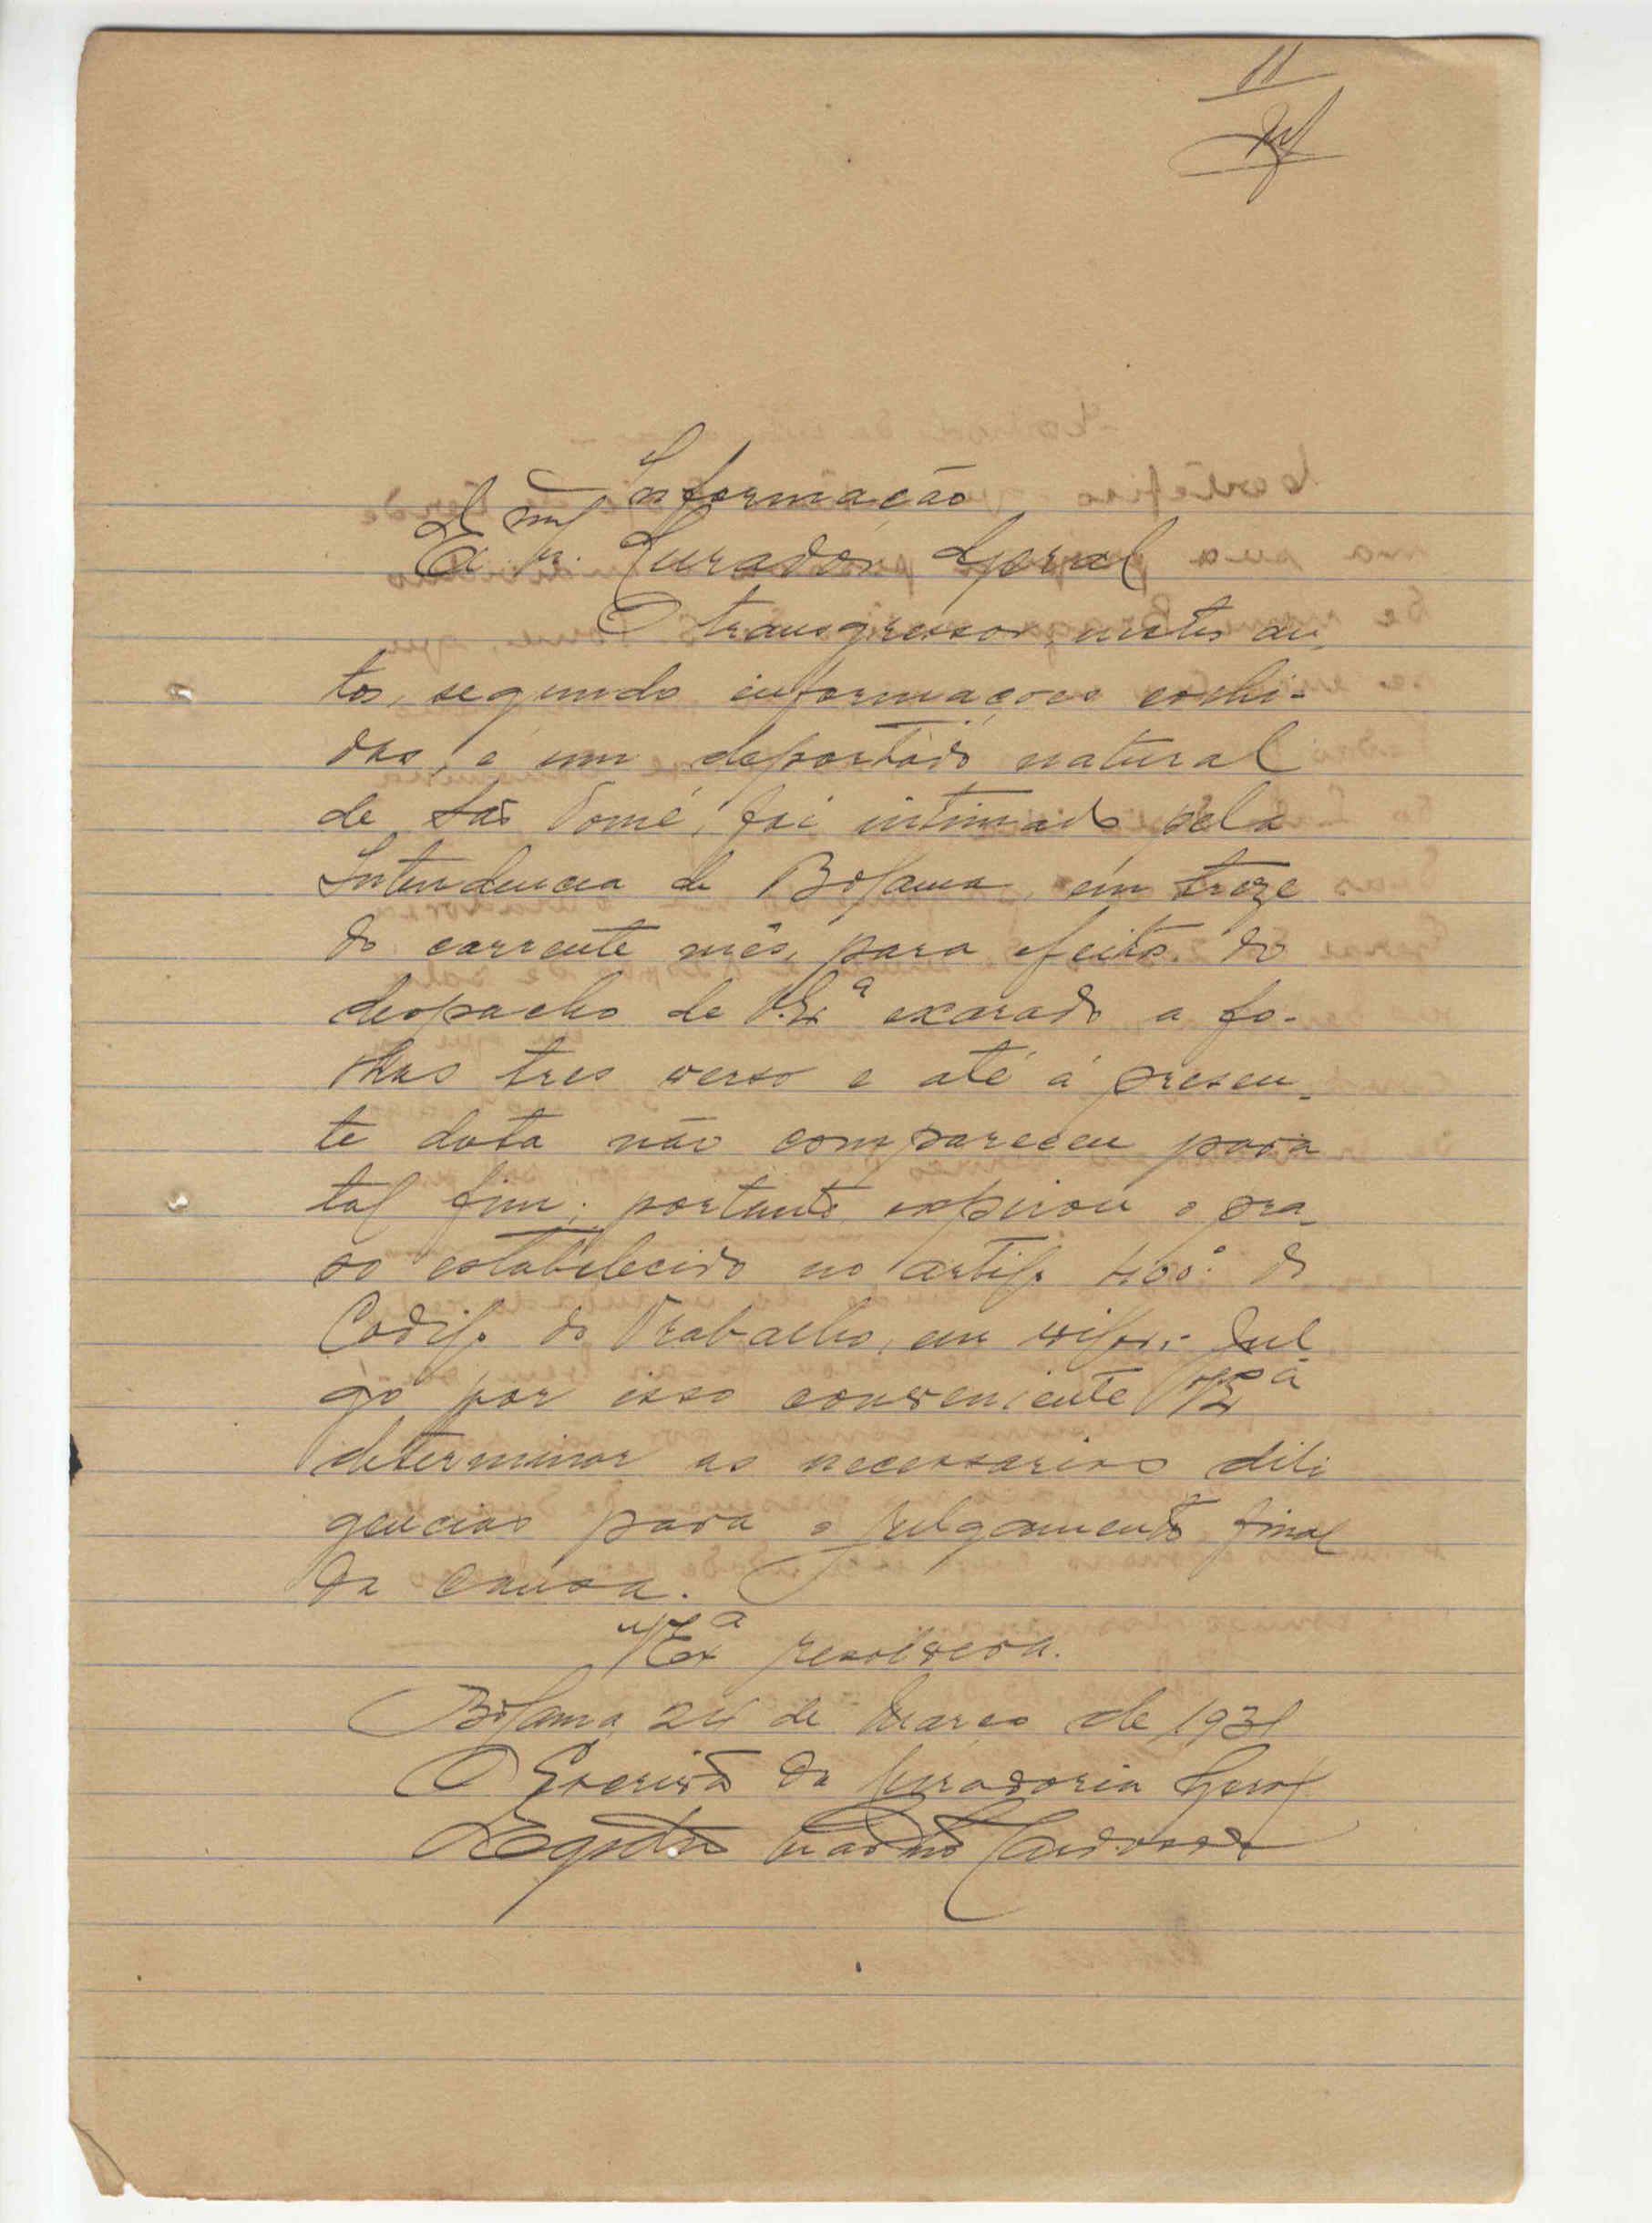 11
Informação
Exmº Sr. Curador Geral
O transgressor, nestes au-
tos, segundo informações colhi-
das, é um deportado natural
de São Tomé, foi intimado pela
Intendencia de Bolama, em treze
do corrente mês, para efeito do
despacho de V. Exª exarado a fo-
lhas tres verso e até á presen-
te data não compareceu para
tal fim; portanto expirou o pra-
so estabelecido no artigo 400º do
Codigo do Trabalho, em vigor; Jul-
go por isso conveniente V. Exª
determinar as necessarias dili-
gencias para o julgamento final
da causa.
V. Exª resolverá.
Bolama, 24 de Março de 1931
O Escrivão da Curadoria Geral
Cardoso